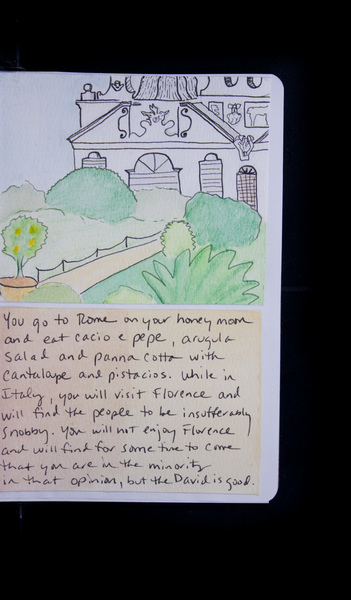 You go to Rome on your honey moon
and eat cacio e pepe, arugula
salad and panna cotta with
cantalope and pistacios. While in
Italy, you will visit Florence and
will find the people to be insufferably
snobby. You will not enjoy Florence
and will find for some time to come
that you are in the minority
in that opinion, but the David is good.